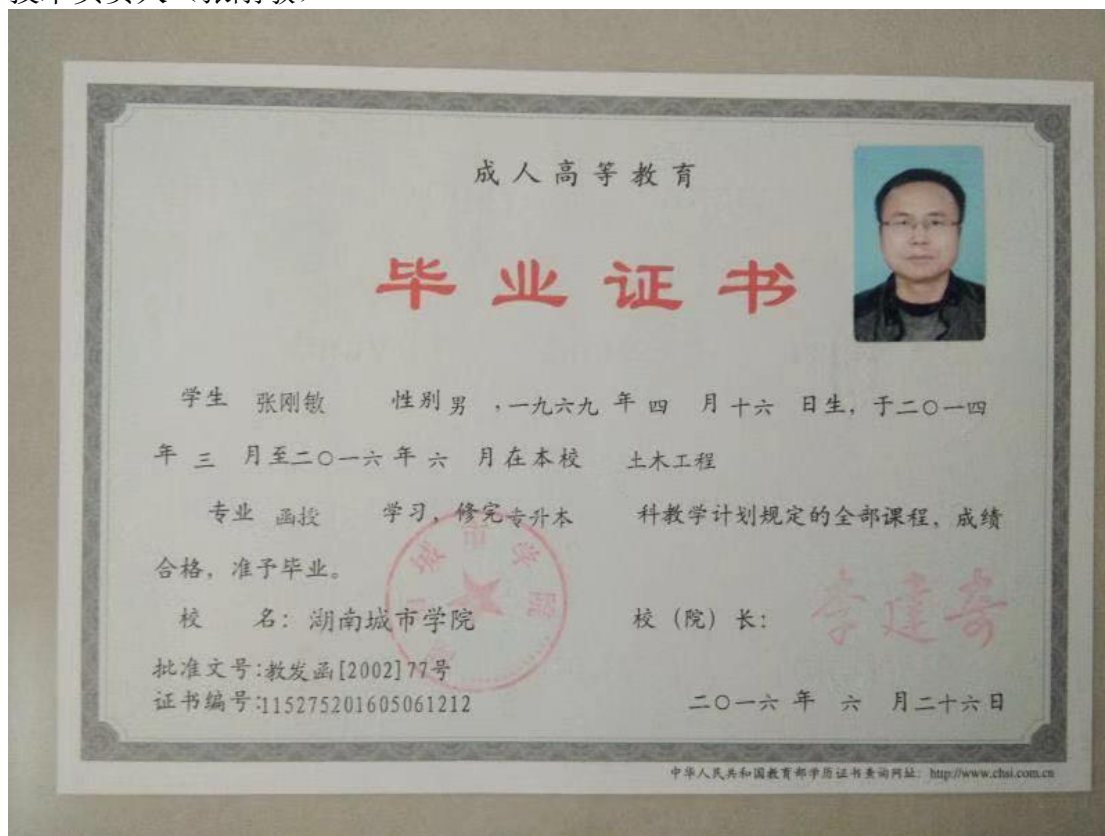 成人高等教育
毕业证书
学生 张刚敏 性别 男 ,一九六九 年 四 月 十六 日生，于二〇一四
年 三 月至二〇一六 年 六 月在本校 土木工程
专业 函授 学习，修完 专升本 科教学计划规定的全部课程，成绩
合格，准予毕业。
校 名：湖南城市学院 校（院）长： 李建奇
批准文号:教发函[2002]77号
证书编号:115275201605061212 二〇一六 年 六 月二十六日
中华人民共和国教育部学历证书查询网址：http://www.chsi.com.cn